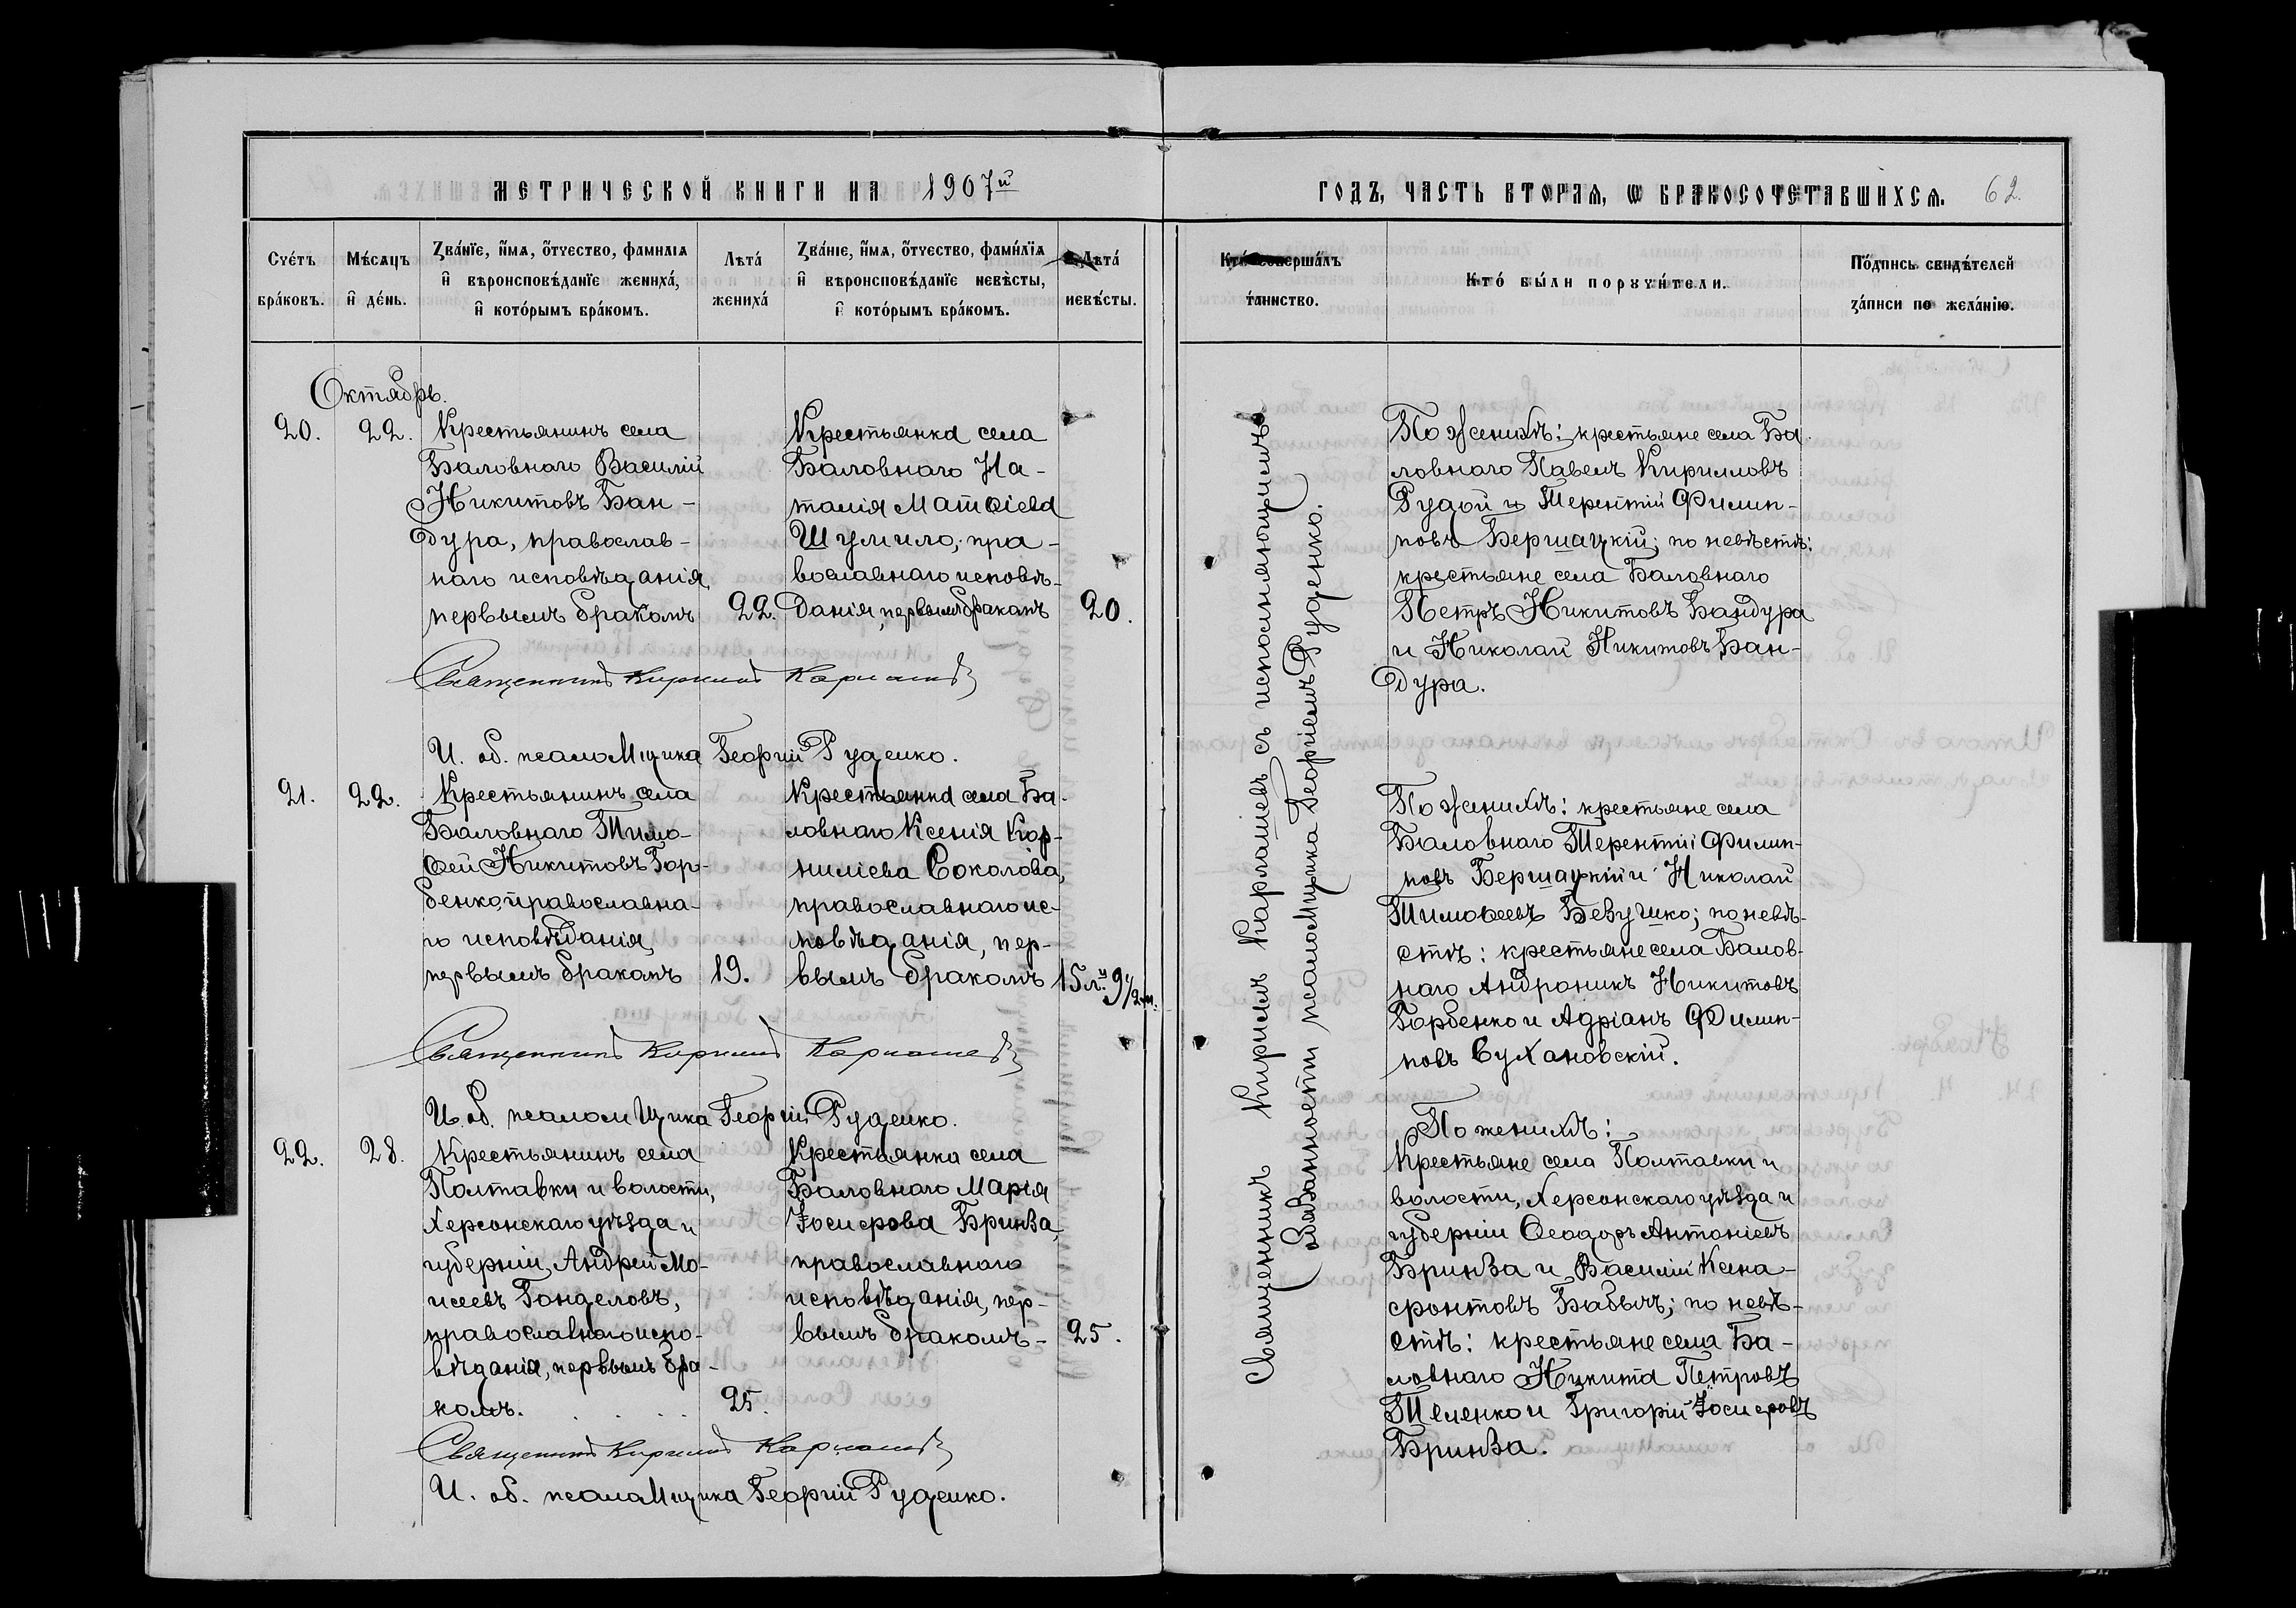 МЕТРИЧЕСКОЙ КНИГИ НА 1907й
ГОДЪ, ЧАСТЬ ВТОРАЯ, Ѡ БРАКОСОЧЕТАВШИХСЯ. 62.
Счетъ браковъ.
Мѣсяцъ и день.
Званіе, имя, отчество, фамилія
и вѣроисповѣданіе жениха,
и которымъ бракомъ.
Лѣта
жениха
Званіе, имя, отчество, фамилія
и вѣроисповѣданіе невѣсты,
и которымъ бракомъ.
Лѣта
невѣсты.
Кто совершалъ
таинство.
Кто были поручители.
Подпись свидѣтелей
записи по желанію.
Октябрь.
20. 22.
Крестьянинъ села
Баловнаго Василій
Никитовъ Бан-
дура, православ-
наго исповѣданія,
первымъ бракомъ
22.
Крестьянка села
Баловнаго На-
талія Матѳіева
Шумило, пра-
вославнаго исповѣ-
данія, первымъ бракомъ
20.
По женихѣ: крестьяне села Ба-
ловнаго Павелъ Кирилловъ
Рудой и Терентій Филип-
повъ Бершацкій; по невѣстѣ:
крестьяне села Баловнаго
Петръ Никитовъ Бандура
и Николай Никитовъ Бан-
дура.
Священникъ Кириллъ Карлашевъ
И. об. псаломщика Георгій Руденко.
21. 22.
Крестьянинъ села
Баловнаго Тимо-
ѳей Никитовъ Гор-
бенко, православна-
го исповѣданія,
первымъ бракомъ
19.
Крестьянка села Ба-
ловнаго Ксенія Кор-
нилiева Соколова,
православнаго ис-
повѣданія, пер-
вымъ бракомъ
15 л. и 9 1/2 м.
По женихѣ: крестьяне села
Баловнаго Терентій Филип-
повъ Бершацкій и Николай
Тимоѳеевъ Безушко; по невѣ-
стѣ: крестьяне села Балов-
наго Андроникъ Никитовъ
Горбенко и Адріанъ Филип-
повъ Сухановскій.
Священникъ Кириллъ Карлашевъ
И. об. псаломщика Георгій Руденко.
22. 28.
Крестьянинъ села
Полтавки и волости,
Херсонскаго уѣзда и
губерніи, Андрей Мо-
исеевъ Гонделовъ,
православнаго испо-
вѣданія, первымъ бра-
комъ.
25.
Крестьянка села
Баловнаго Марія
Іосифова Бринза,
православнаго
исповѣданія, пер-
вымъ бракомъ-
25.
По женихѣ:
Крестьяне села Полтавки и
волости, Херсонскаго уѣзда и
губерніи Ѳеодоръ Антоніевъ
Бринза и Василій Ксено-
фонтовъ Бабичъ; по невѣ-
стѣ: крестьяне села Ба-
ловнаго Никита Петровъ
Теленко и Григорій Іосифовъ
Бринза.
Священникъ Кириллъ Карлашевъ
И. об. псаломщика Георгій Руденко.
Священникъ Кириллъ Карлашевъ съ исполняющимъ
обязанности псаломщика Георгіемъ Руденко.